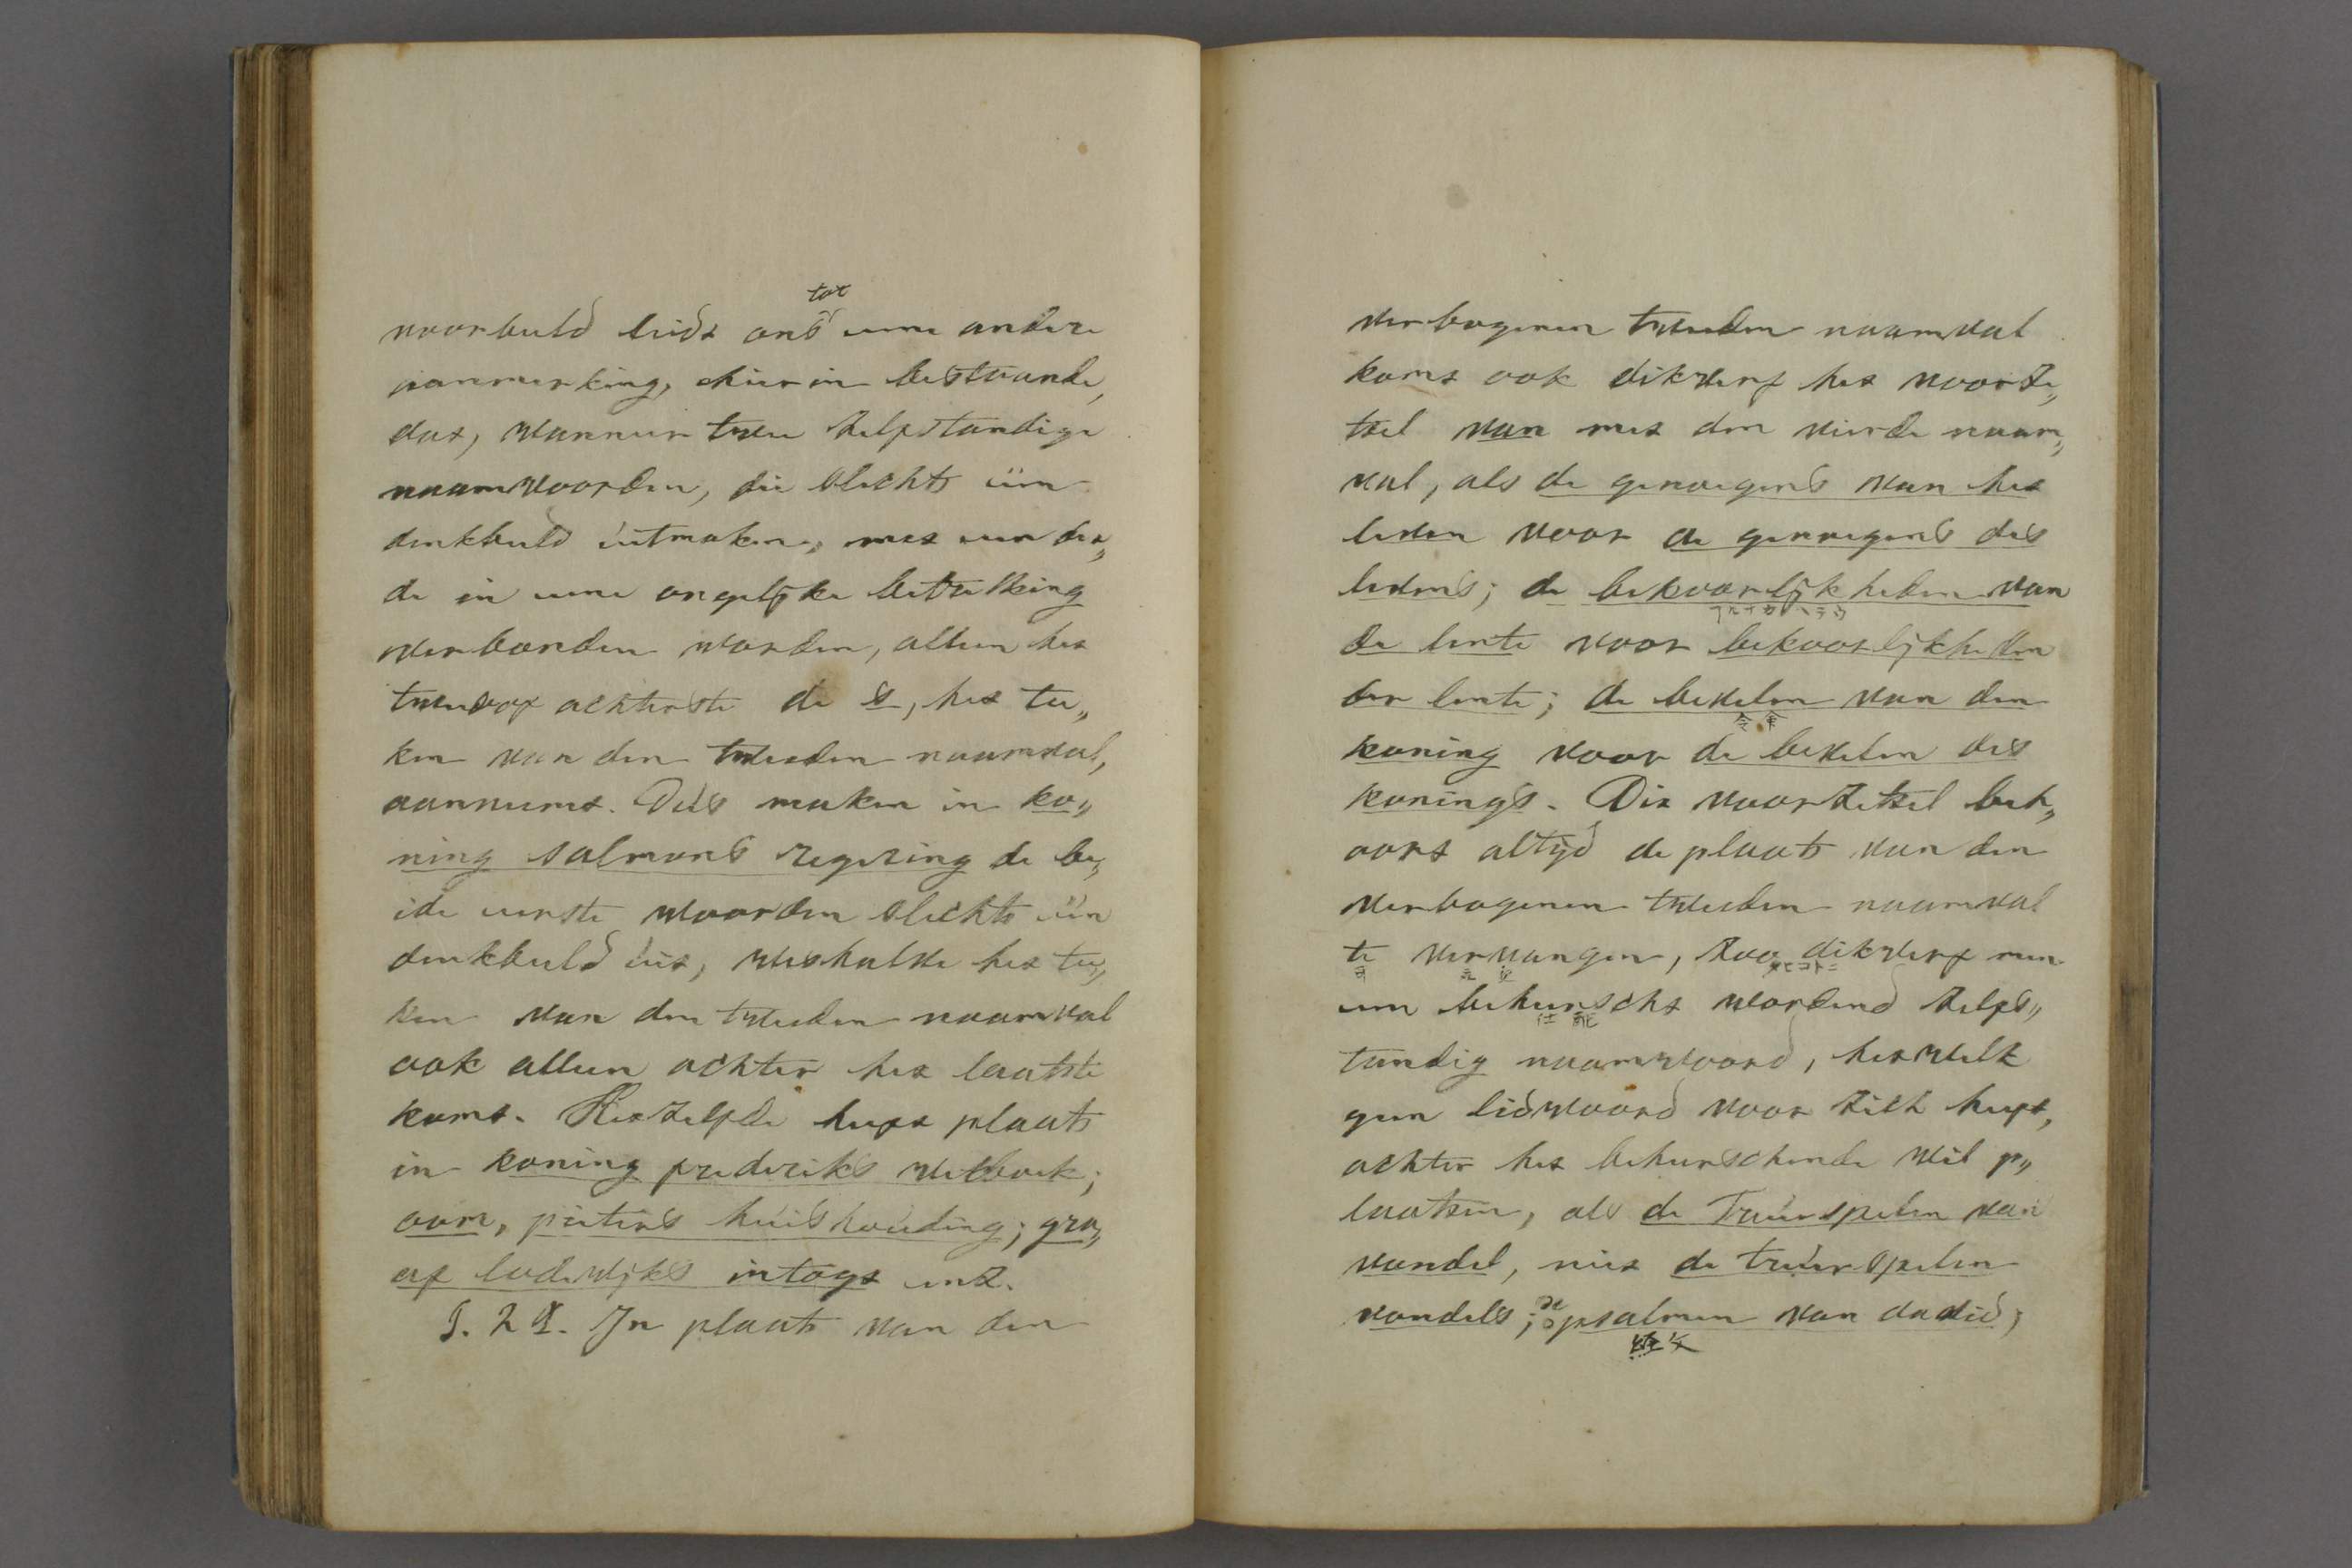 voorbeeld leidt ons tot eene andere
aanmerking, hier in bestaande,
dat, wanneer twee zelfstandige
naamwoorden, die slechts één
denkbeeld úitmaken, met een der„
de in eene ongelijke betrekking
verbonden worden, alleen het
tweede of achterste de s, het tee„
ken van den tweeden naamval,
aanneemt. Dús maken in ko„
ning salmons regering de be„
ide eerste woorden slechts één
denkbeeld úit, weshalve het tee„
ken van den tweeden naamval
ook alleen achter het laatste
komt. Hetzelfde heeft plaats
in koning frederiks wetboek;
oom, pieters húishoúding; gra„
af lodewijks intogt enz.
§. 29. In plaats van den
verbogenen tweeden naamval
komt ook dikwerf het voorze„
tsel van met den vierde naam„
val, als de genoegens van het
leven voor de genoegens des
levens; de bekoorlijkheden van
de lente voor bekoorlijkheden
der lente; de bevelen van den
命令
koning voor de bevelen des
konings. Dit voorzetsel beh„
oort altijd de plaats van den
verbogenen tweeden naamval
te vervangen, zoo dikwerf men
een beheerscht wordend zelfs„
tandig naamwoord, hetwelk
geen lidwoord voor zich heeft,
achter het beheerschende wil p„
laatsen, als de Treúrspelen van
vondel, niet de treúrspelen
vondels; de psalmen van david;
經文